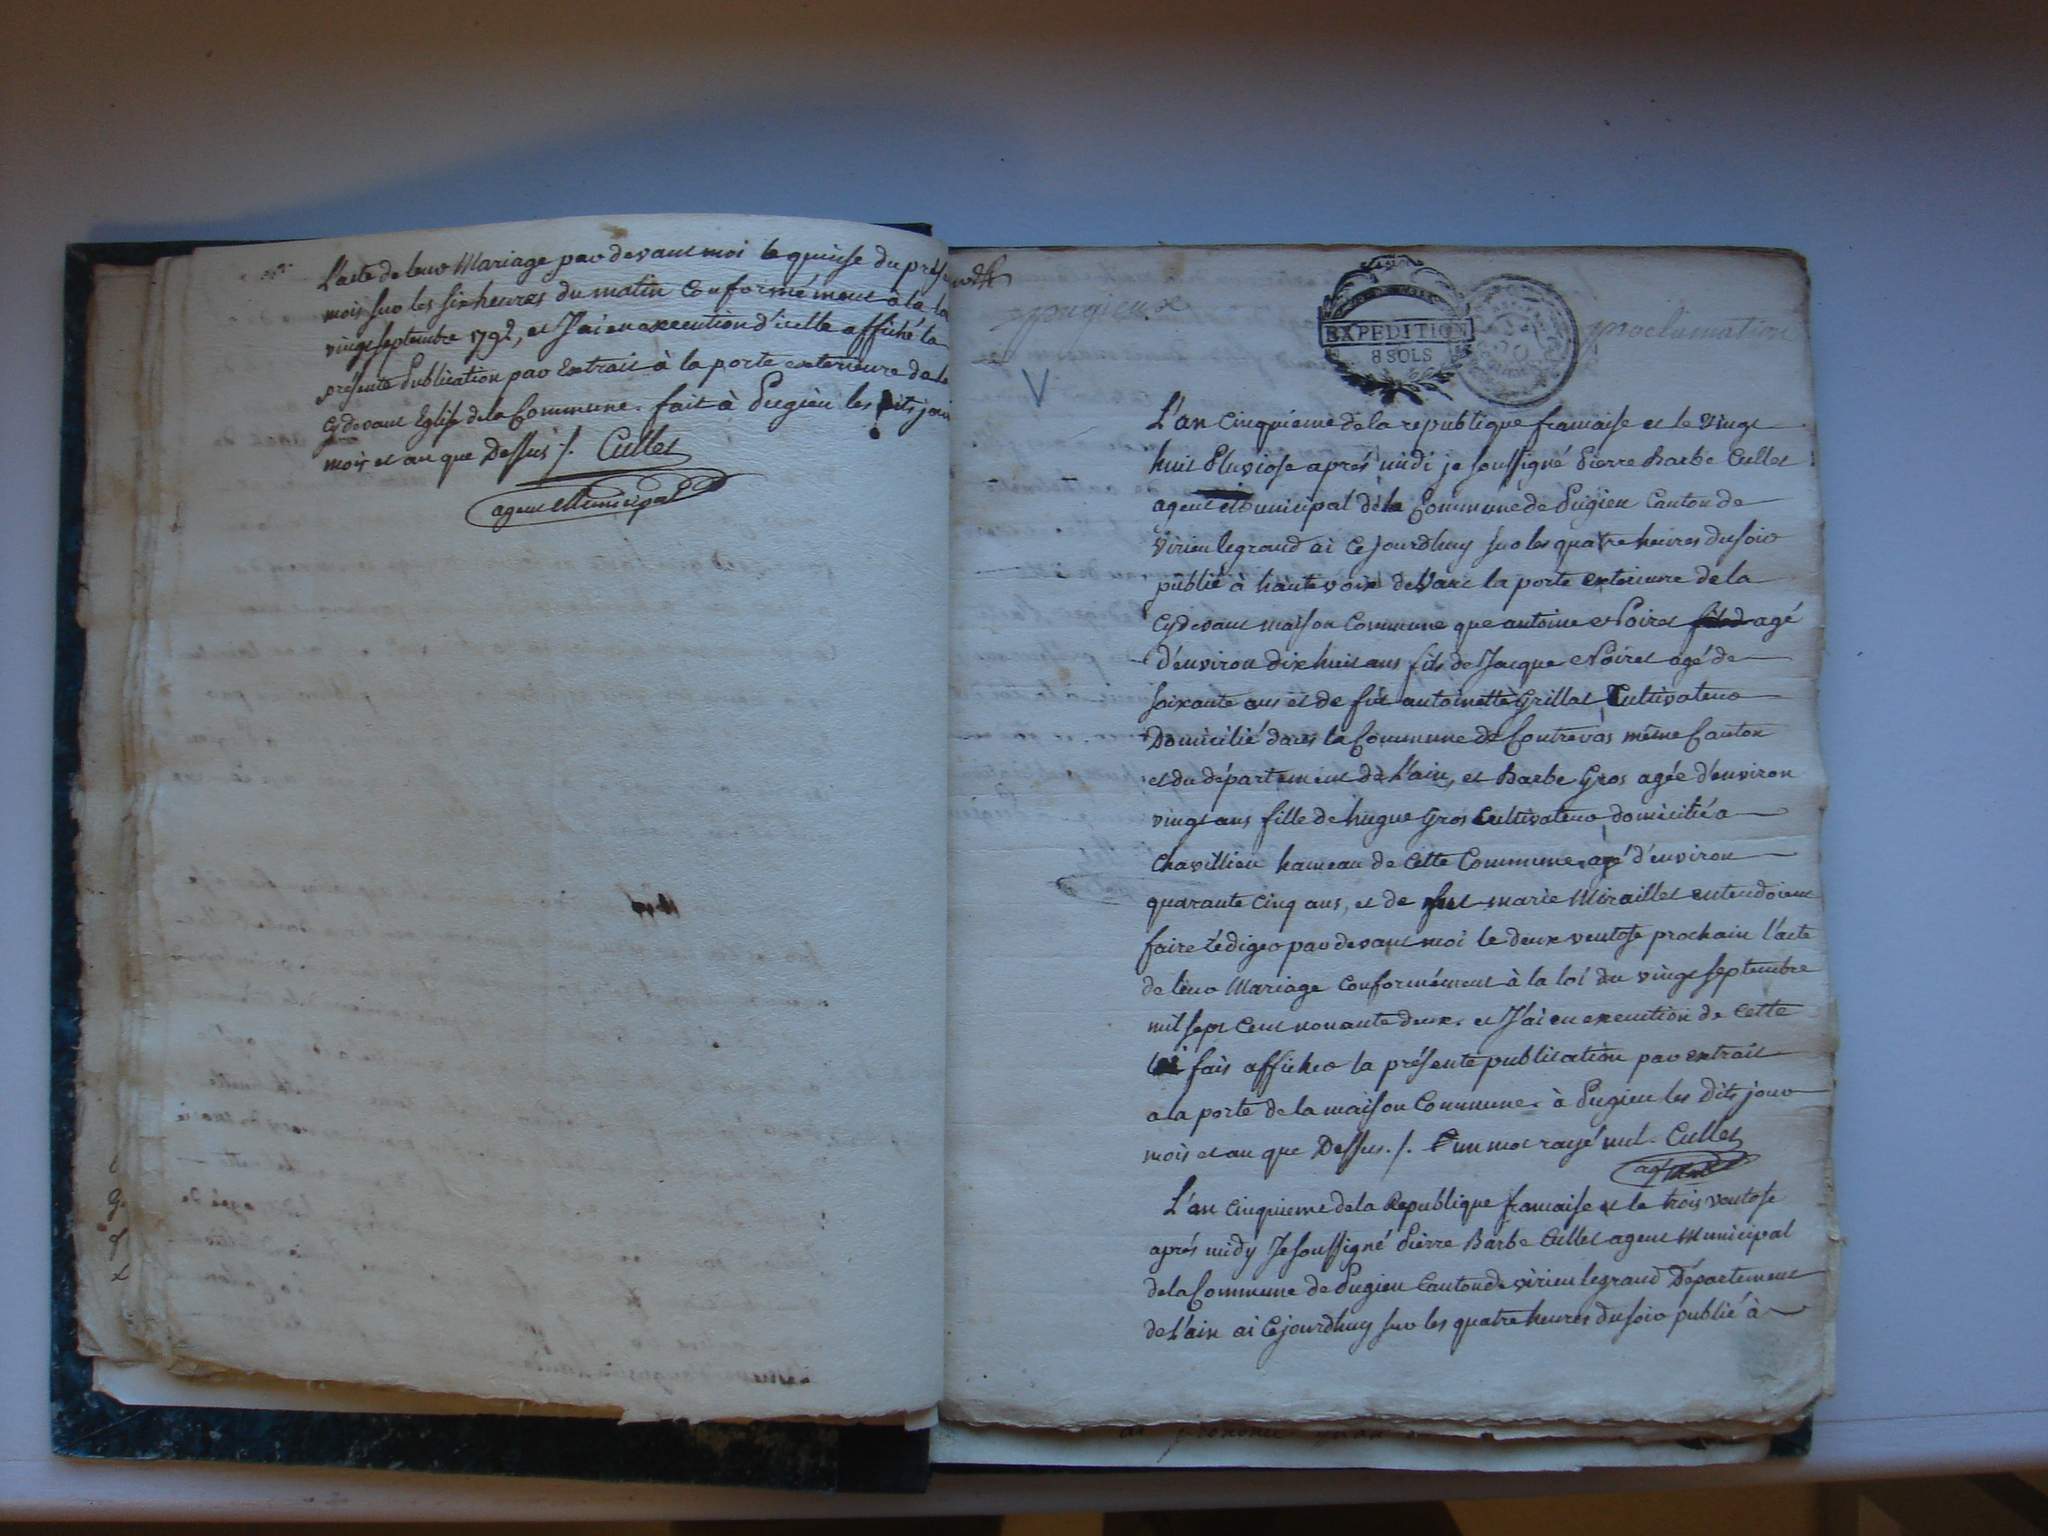 L'acte de leur Mariage par devant moi le quinse du présent
mois sur les six heures du matin Conformément à la loi
vingt septembre 1792, et J'ai en execution d'icelle affiché la
présente Publication par Extrait à la porte exterieure de la
Cydevant Eglise de la Commune. fait à Pugieu les dits jour
mois et an que Dessus ./. Cullet
agent Municipal
pugieux
EXPEDITION
8 SOLS
proclamation
V
L'an Cinquième de la republique francaise et le Vingt
huit Pluviose aprés midi je soussigné Pierre Barbe Cullet
agent Municipal de la Commune de Pugieu Canton de
Virieu legrand ai Cejourdhuy sur les quatre heures du soir
publié à haute voix devant la porte exterieure de la
Cydevant maison Commune que antoine Poiret agé
d'environ dix huit ans fils de Jacque Poiret agé de
soixante ans et de fût antoinette Grillet Cultivateur
Domicilié dans la Commune de Contrevos même Canton
et du département de L'ain, et Barbe Gros agée d'environ
vingt ans fille de hugue Gros Cultivateur domicilié a
Chavillieu hameau de Cette Commune agé d'environ
quarante cinq ans, et de fut marie Miraillet entendoient
faire rédiger par devant moi le deux ventose prochain l'acte
de leur Mariage Conformément à la loi du vingt septembre
mil sept Cent nonante deux. et J'ai en execution de Cette
loi fais afficher la présente publication par extrait
a la porte de la maison Commune. à Pugieu les Dits jour
mois et an que Dessus ./. un mot rayé nul. Cullet
agt
L'an Cinquieme de la Republique francaise et le trois ventose
aprés midy Je soussigné Pierre Barbe Cullet agent Municipal
de la Commune de Pugieu Canton de virieu legrand Département
de L'ain ai Cejourdhuy sur les quatre heures du soir publié à